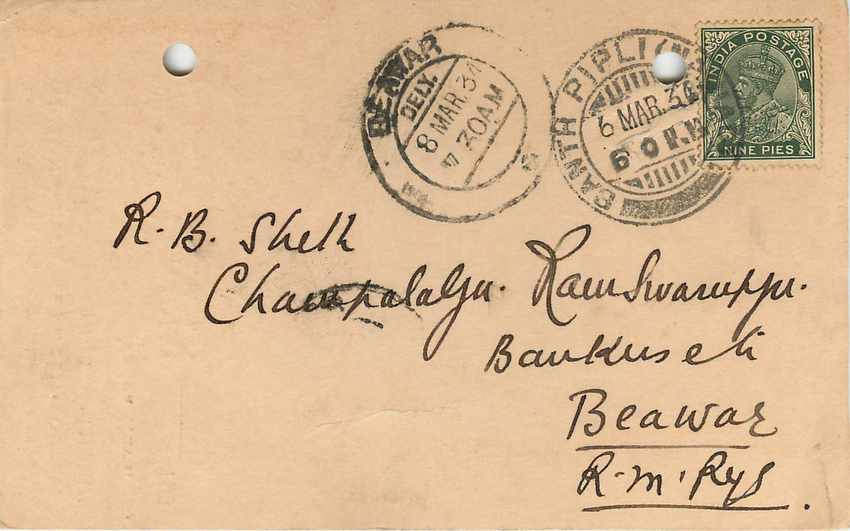 BEAWAR
DELY.
8 MAR. 34
7 30AM
CANTR PIPLI (N
6 MAR. 34
6 0
INDIA POSTAGE
NINE PIES
R. B. Sheth
Champalalju. Ramswarupju.
Beawar
R. M. Rys.